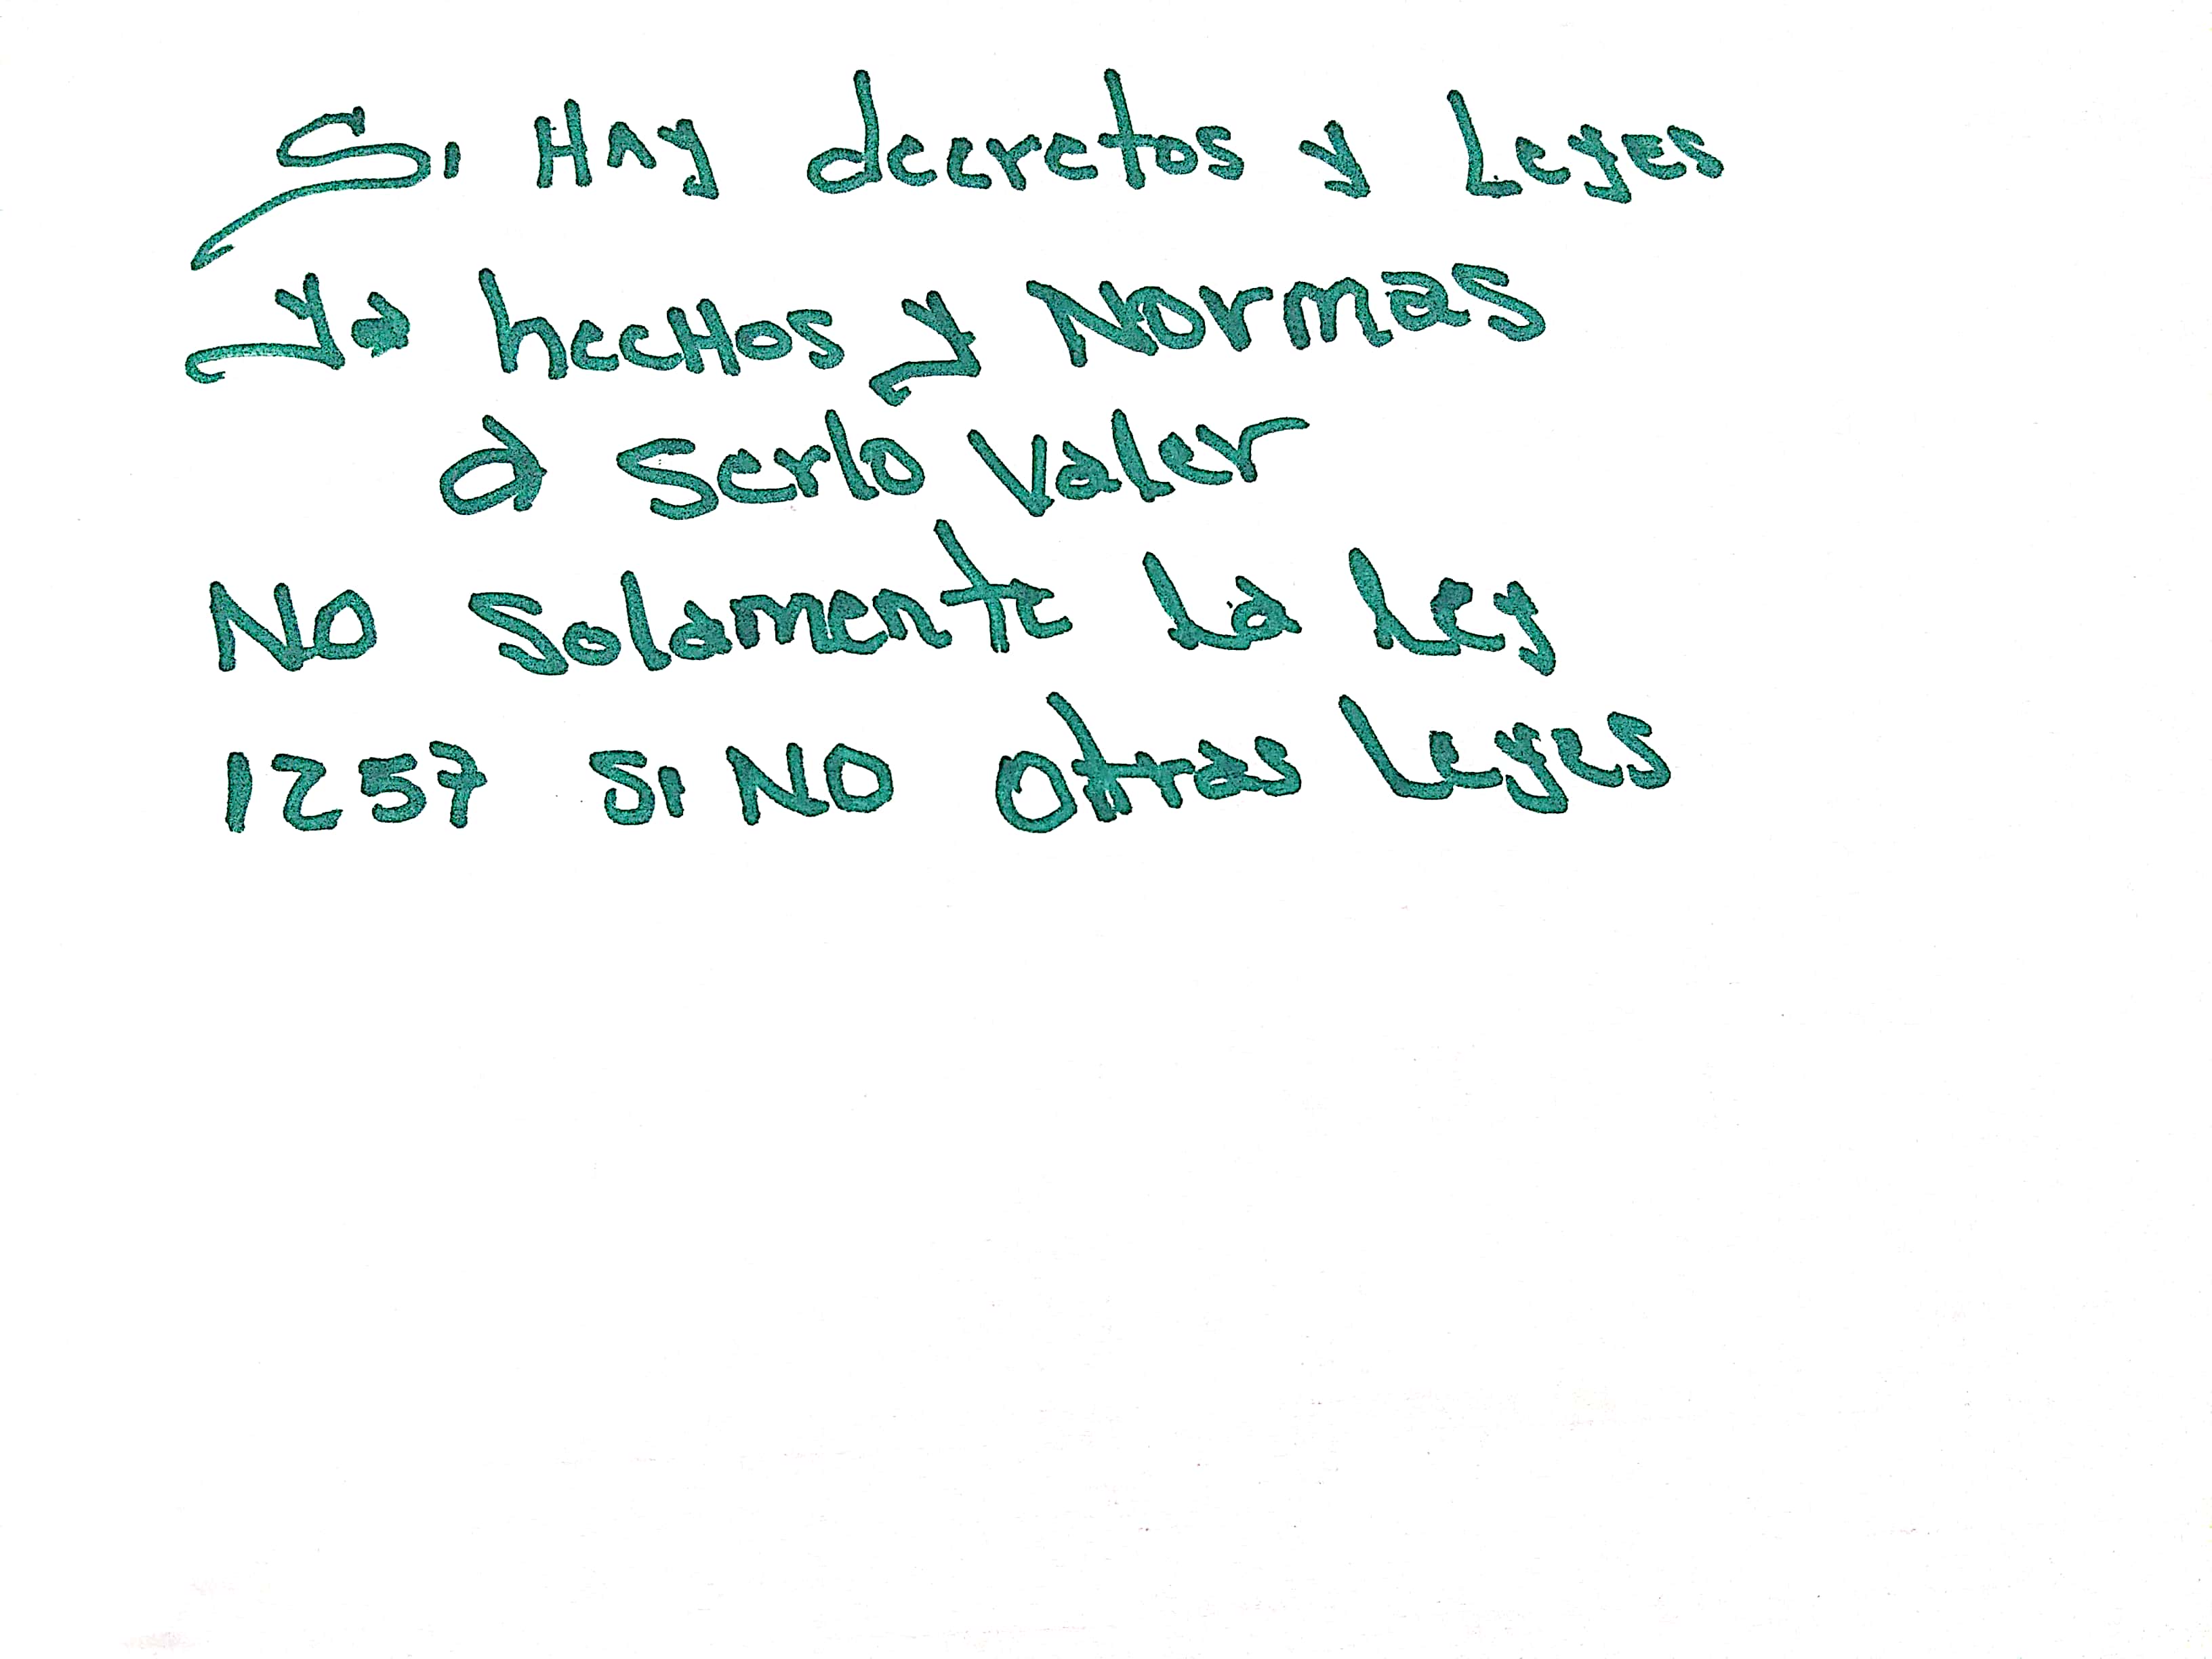 Si Hay decretos y Leyes
ya hecHos y Normas
a serlo valer
No Solamente La Ley
1257 Si NO Otras Leyes